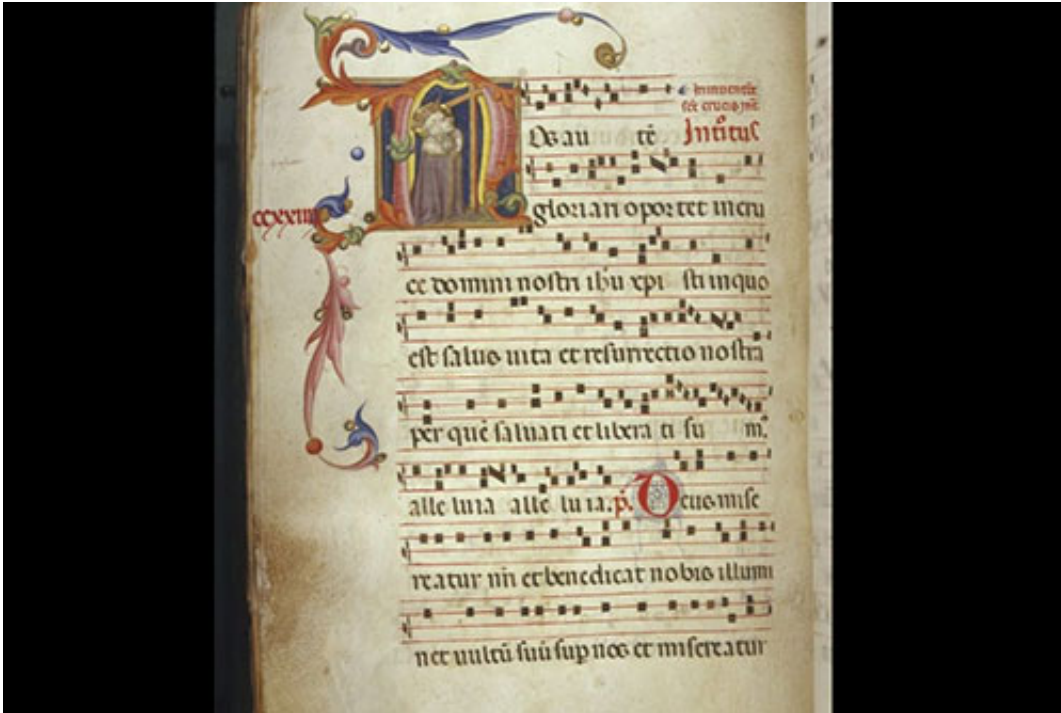 In inventiõe
scẽ crucis
Introitus
Nos au tẽ
gloriari oportet in cru
ccxxiiii
ce domini nostri ihu xpi sti in quo
est salus uita et resurrectio nostra
per quẽ saluati et libera ti su m⁹.
alle luia alle lu ia. p̃. Deus mise
reatur nr̃i et benedicat nobis illumi
net uultũ suũ sup nos et misereatur